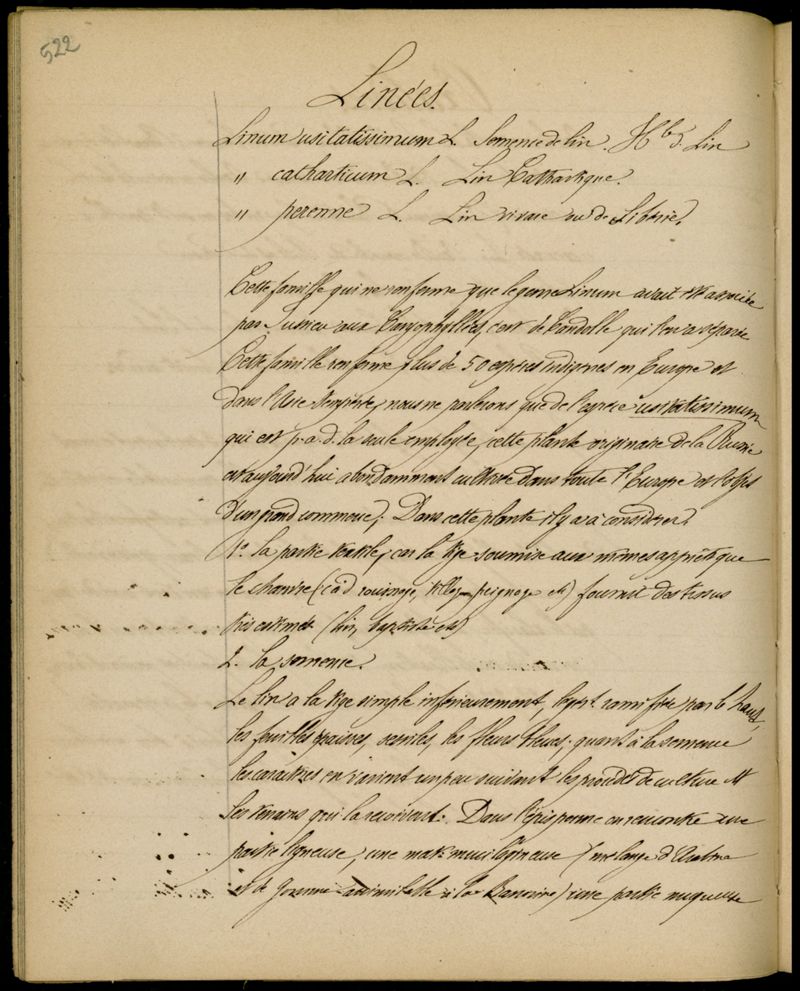 522
Linées.
Linum usitatissimum L. Semence de lin. Hbé. Lin
" catharticum L. Lin Cathartique.
" perenne L. Lin vivace ou de Sibérie.
Cette famille qui ne renferme que le genre Linum avait été associée
par Jussieu aux Caryophyllées, c'est de Candolle qui l'en a séparée
Cette famille renferme plus de 50 espèces indigènes en Europe et
dans l'Asie tempérée, nous ne parlerons que de l'espèce usitatissimum
qui est p.a.d. la seule employée, cette plante originaire de la Russie
est aujourd'hui abondamment cultivée dans toute l'Europe et l'objet
d'un grand commerce. Dans cette plante il y a à considérer.
1o. la partie textile, car la tige soumise aux mêmes apprêts que
le chanvre (càd rouissage, peignage etc) fournit des tissus
très estimés (lin, baptiste etc)
2. la semence.
Le lin a la tige simple inférieurement, ramifiée par le haut,
les feuilles éparses, sessiles, les fleurs bleues. quant à la semence
les caractères en varient un peu suivant les procédés de culture et
les terrains qui la reçoivent. Dans l'épisperme on rencontre une
partie ligneuse, une mat. mucilagineuse (mélange d'Arabine
et de assimilable à la Bassorine) une partie